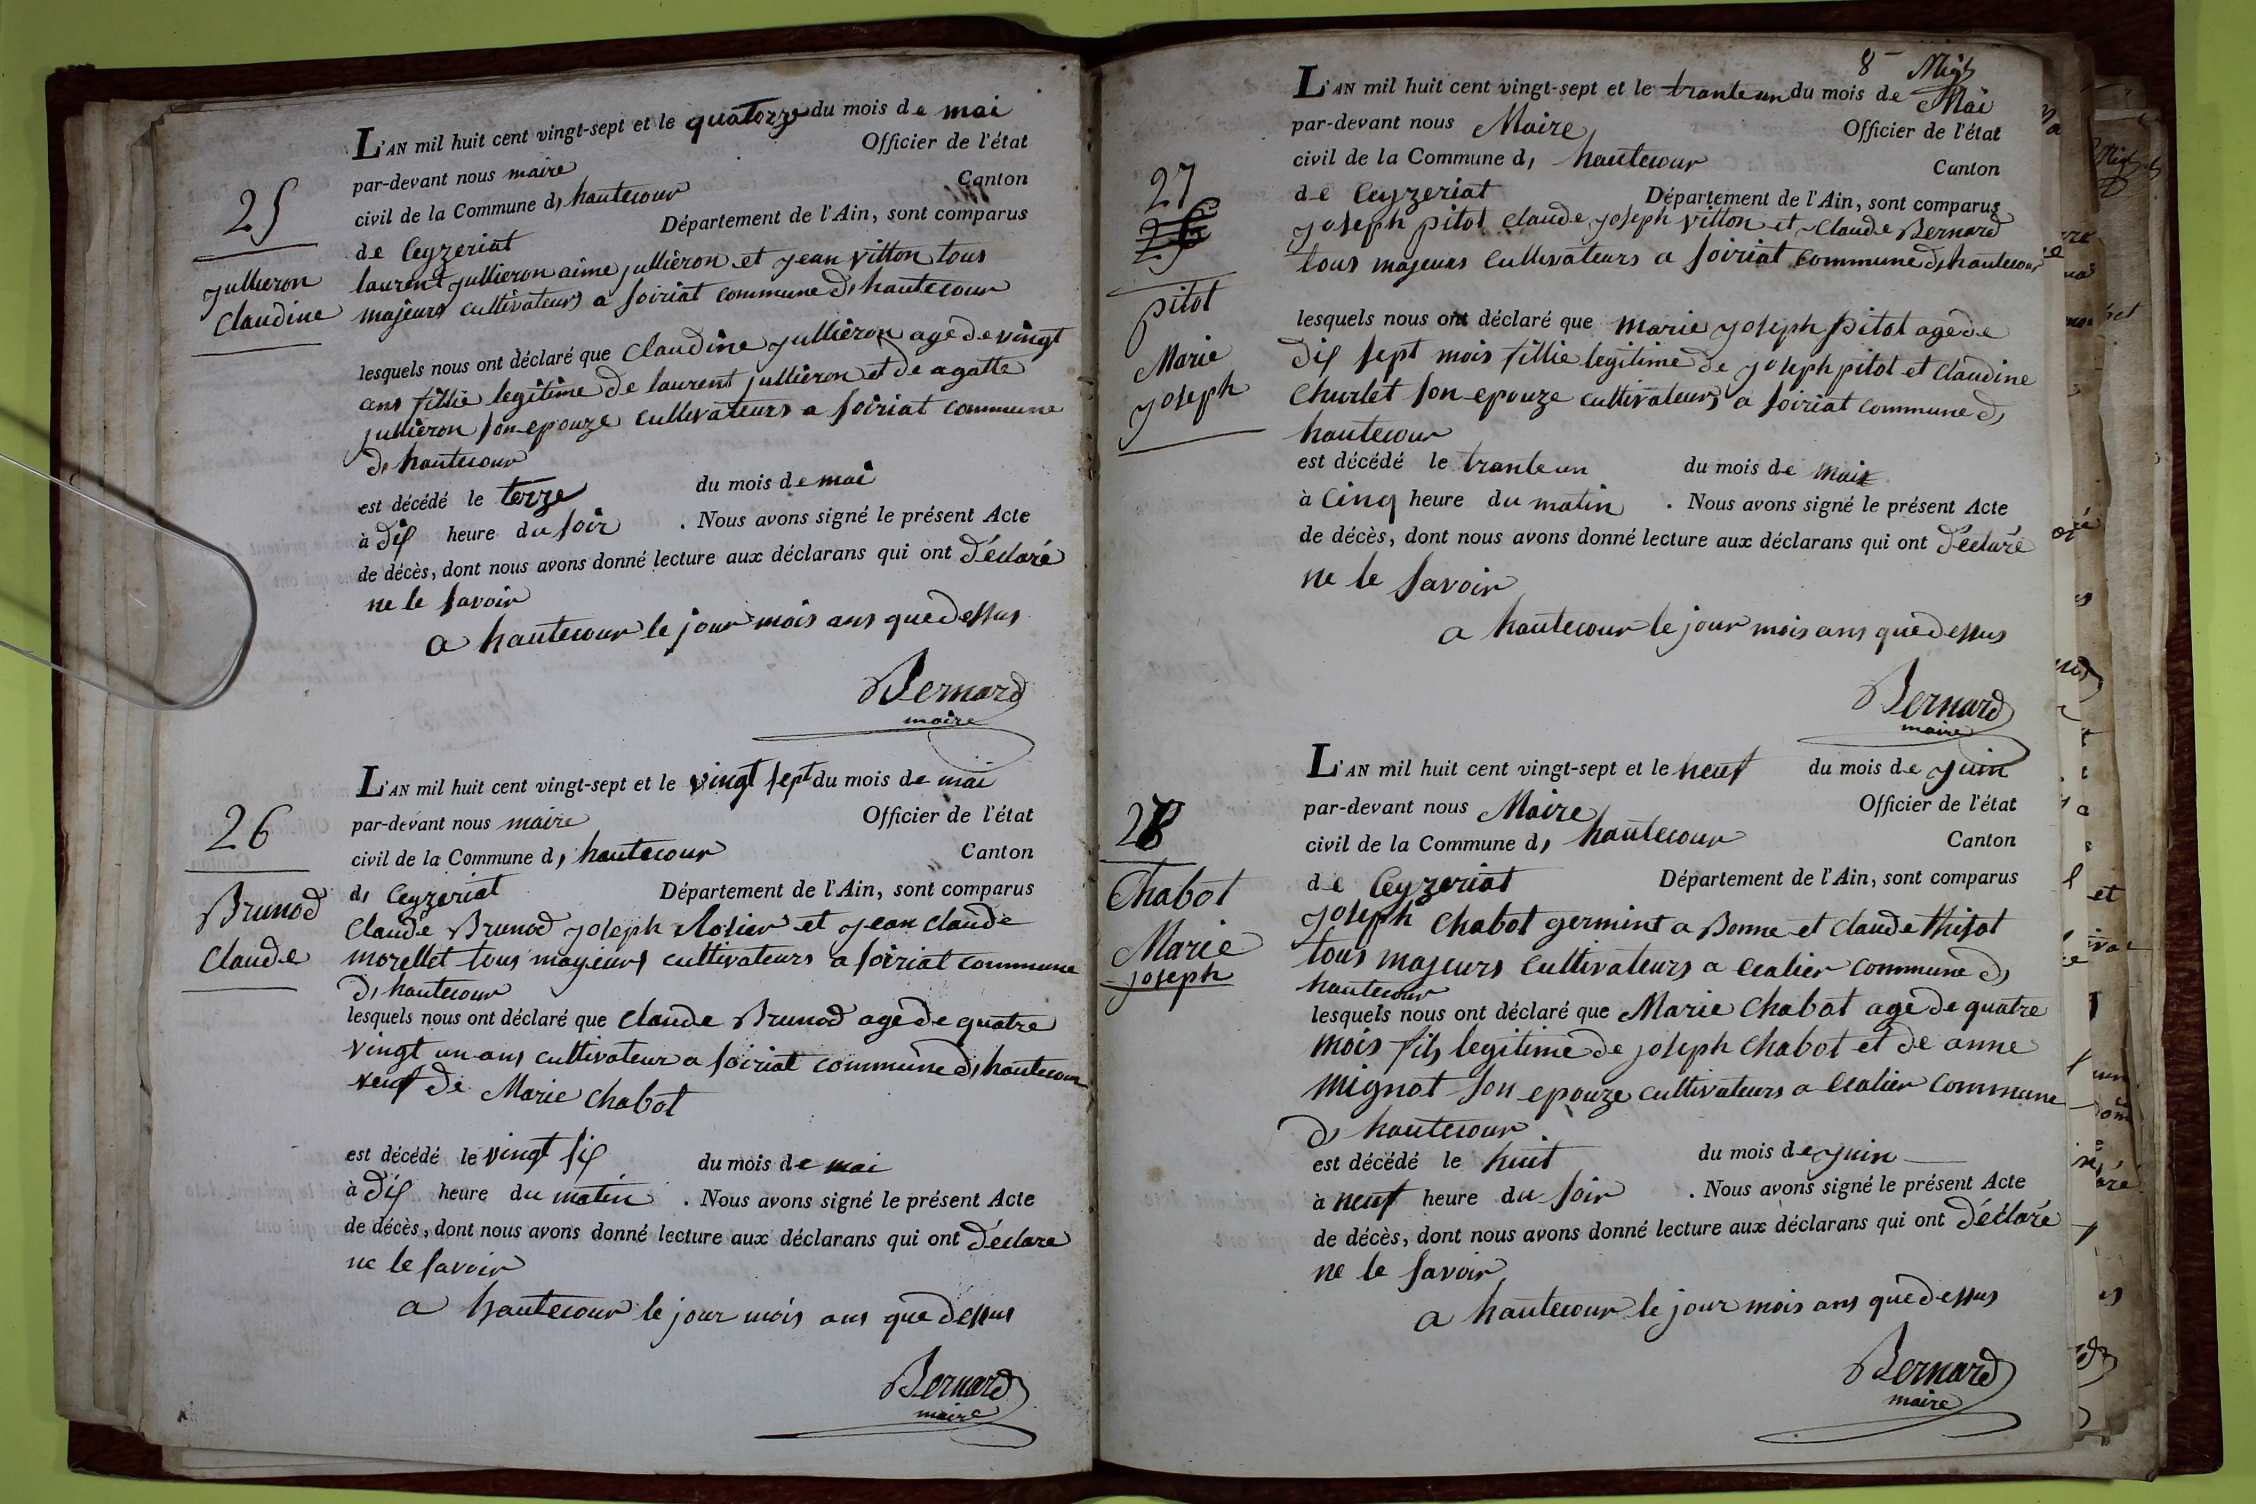 25
jullieron
Claudine
L'AN mil huit cent vingt-sept et le quatorze du mois de mai
par-devant nous maire Officier de l'état
civil de la Commune d, hautecour Canton
de Ceyzeriat Département de l'Ain, sont comparus
laurent jullieron aime jullieron et jean vitton tous
majeurs cultivateurs a soiriat commune d, hautecour
lesquels nous ont déclaré que Claudine jullieron agé de vingt
ans fillie legitime de laurent jullieron et de agatte
jullieron son epouze cultivateurs a soiriat commune
d, hautecour
est décédé le terze du mois de mai
à dix heure du soir . Nous avons signé le présent Acte
de décès, dont nous avons donné lecture aux déclarans qui ont déclaré
ne le savoir
a hautecour le jour mois ans que dessus
Bernard
maire
26
Brunod
Claude
L'AN mil huit cent vingt-sept et le vingt sept du mois de mai
par-devant nous maire Officier de l'état
civil de la Commune d, hautecour Canton
d, Ceyzeriat Département de l'Ain, sont comparus
Claude Brunod joseph et jean claude
morellet tous majeurs cultivateurs a soiriat commune
d, hautecour
lesquels nous ont déclaré que Claude Brunod agé de quatre
vingt un ans cultivateur a soiriat commune d, hautecour
veuf de Marie Chabot
est décédé le vingt six du mois de mai
à dix heure du matin . Nous avons signé le présent Acte
de décès, dont nous avons donné lecture aux déclarans qui ont déclaré
ne le savoir
a hautecour le jour mois ans que dessus
Bernard
maire
8
27
pitot
Marie
joseph
L'AN mil huit cent vingt-sept et le trante un du mois de Mai
par-devant nous Maire Officier de l'état
civil de la Commune d, hautecour Canton
de Ceyzeriat Département de l'Ain, sont comparus
joseph pitot claude joseph vitton et Claude Bernard
tous majeurs cultivateurs a soiriat commune d, hautecour
lesquels nous ont déclaré que marie joseph pitot agé de
dix sept mois fillie legitime de joseph pitot et claudine
Churlet son epouze cultivateurs a soiriat commune d,
hautecour
est décédé le trante un du mois de mai
à Cinq heure du matin . Nous avons signé le présent Acte
de décès, dont nous avons donné lecture aux déclarans qui ont déclaré
ne le savoir
a hautecour le jour mois ans que dessus
Bernard
maire
28
Chabot
Marie
joseph
L'AN mil huit cent vingt-sept et le neuf du mois de juin
par-devant nous Maire Officier de l'état
civil de la Commune d, hautecour Canton
de Ceyzeriat Département de l'Ain, sont comparus
joseph Chabot germint a Bonne et Claude
tous majeurs cultivateurs a commune d,
hautecour
lesquels nous ont déclaré que Marie Chabot agé de quatre
mois fils legitime de joseph Chabot et de anne
mignot son epouze cultivateurs a commune
d, hautecour
est décédé le huit du mois de juin
à neuf heure du soir . Nous avons signé le présent Acte
de décès, dont nous avons donné lecture aux déclarans qui ont déclaré
ne le savoir
a hautecour le jour mois ans que dessus
Bernard
maire